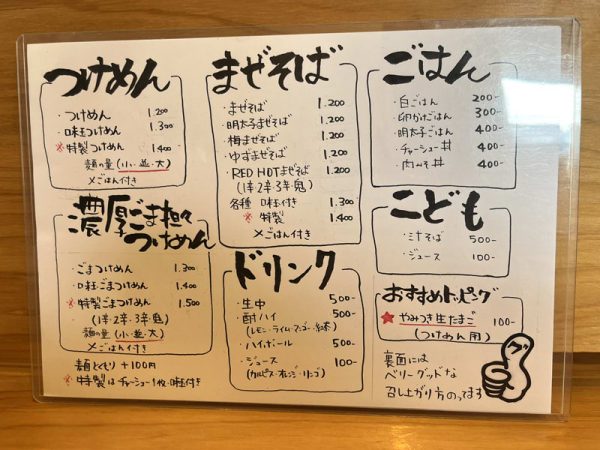 つけめん
・つけめん 1.200
・味玉つけめん 1.300
※特製つけめん 1.400
麺の量(小・並・大)
〆ごはん付き
濃厚ごま担々つけめん
・ごまつけめん 1.300
・味玉ごまつけめん 1.400
※特製ごまつけめん 1.500
(1辛2辛・3辛・鬼)
麺の量(小・並・大)
〆ごはん付き
麺大もり +100円
※特製はチャーシュー1枚・味玉付き
まぜそば
・まぜそば 1.200
・明太子まぜそば 1.200
・梅まぜそば 1.200
・ゆずまぜそば 1.200
・RED HOTまぜそば 1.200
(1辛2辛・3辛・鬼)
各種 味玉付き 1.300
※特製 1.400
〆ごはん付き
ドリンク
・生中 500-
・酎ハイ 500-
(レモン・ライム・マンゴー・紅茶)
・ハイボール 500-
・ジュース 100-
(カルピス・オレンジ・リンゴ)
ごはん
・白ごはん 200-
・卵かけごはん 300-
・明太子ごはん 400-
・チャーシュー丼 400-
・肉みそ丼 400-
こども
・ミニそば 500-
・ジュース 100-
おすすめトッピング
★やみつき生たまご 100-
(つけめん用)
裏面には
ベリーグッドな
召し上がり方のってます